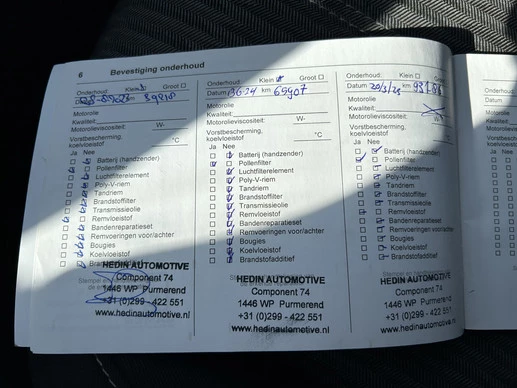 6 Bevestiging onderhoud
Onderhoud: Klein Groot
km
Motorolie
Kwaliteit:
Motorolieviscositeit: W-
Vorstbescherming, koelvloeistof °C
Ja Nee
Batterij (handzender)
Pollenfilter
Luchtfilterelement
Poly-V-riem
Tandriem
Brandstoffilter
Transmissieolie
Remvloeistof
Bandenreparatieset
Remvoeringen voor/achter
Bougies
Koelvloeistof
HEDIN AUTOMOTIVE
Component 74
1446 WP Purmerend
+31 (0)299 - 422 551
www.hedinautomotive.nl
Onderhoud: Klein Groot
Datum km 69907
Motorolie
Kwaliteit:
Motorolieviscositeit: W-
Vorstbescherming, koelvloeistof °C
Ja Nee
Batterij (handzender)
Pollenfilter
Luchtfilterelement
Poly-V-riem
Tandriem
Brandstoffilter
Transmissieolie
Remvloeistof
Bandenreparatieset
Remvoeringen voor/achter
Bougies
Koelvloeistof
Brandstofadditief
HEDIN AUTOMOTIVE
Component 74
1446 WP Purmerend
+31 (0)299 - 422 551
www.hedinautomotive.nl
Onderhoud: Klein Groot
Datum km
Motorolie
Kwaliteit:
Motorolieviscositeit:
Vorstbescherming, koelvloeistof °C
Ja Nee
Batterij (handzender)
Pollenfilter
Luchtfilterelement
Poly-V-riem
Tandriem
Brandstoffilter
Transmissieolie
Remvloeistof
Bandenreparatieset
Remvoeringen voor/achter
Bougies
Koelvloeistof
Brandstofadditief
HEDIN AUTOMOTIVE
Component 74
1446 WP Purmerend
+31 (0)299 - 422 551
www.hedinautomotive.nl
Onderhoud:
Datum
Motorolie
Ja Nee